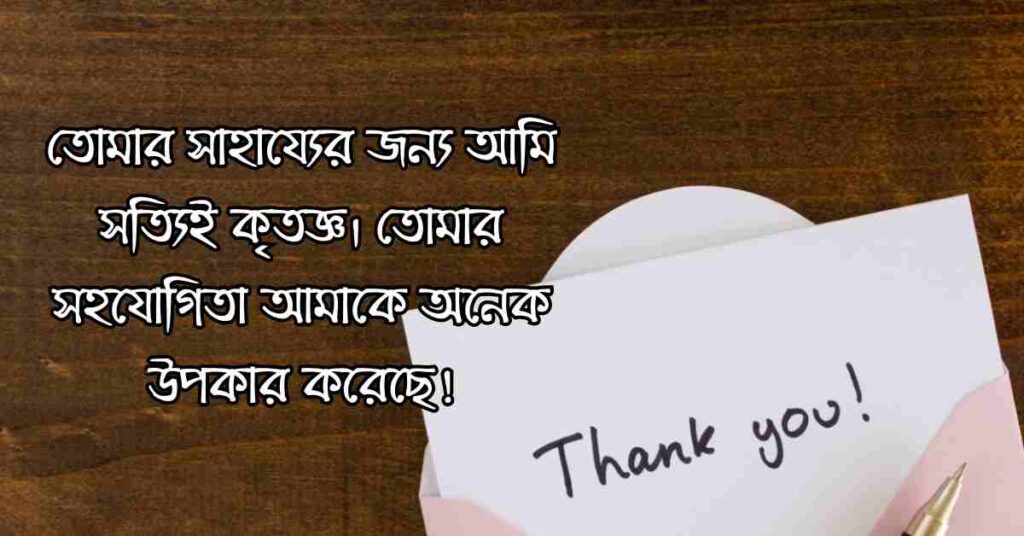 তোমার সাহায্যের জন্য আমি
সত্যিই কৃতজ্ঞ। তোমার
সহযোগিতা আমাকে অনেক
উপকার করেছে!
Thank you!